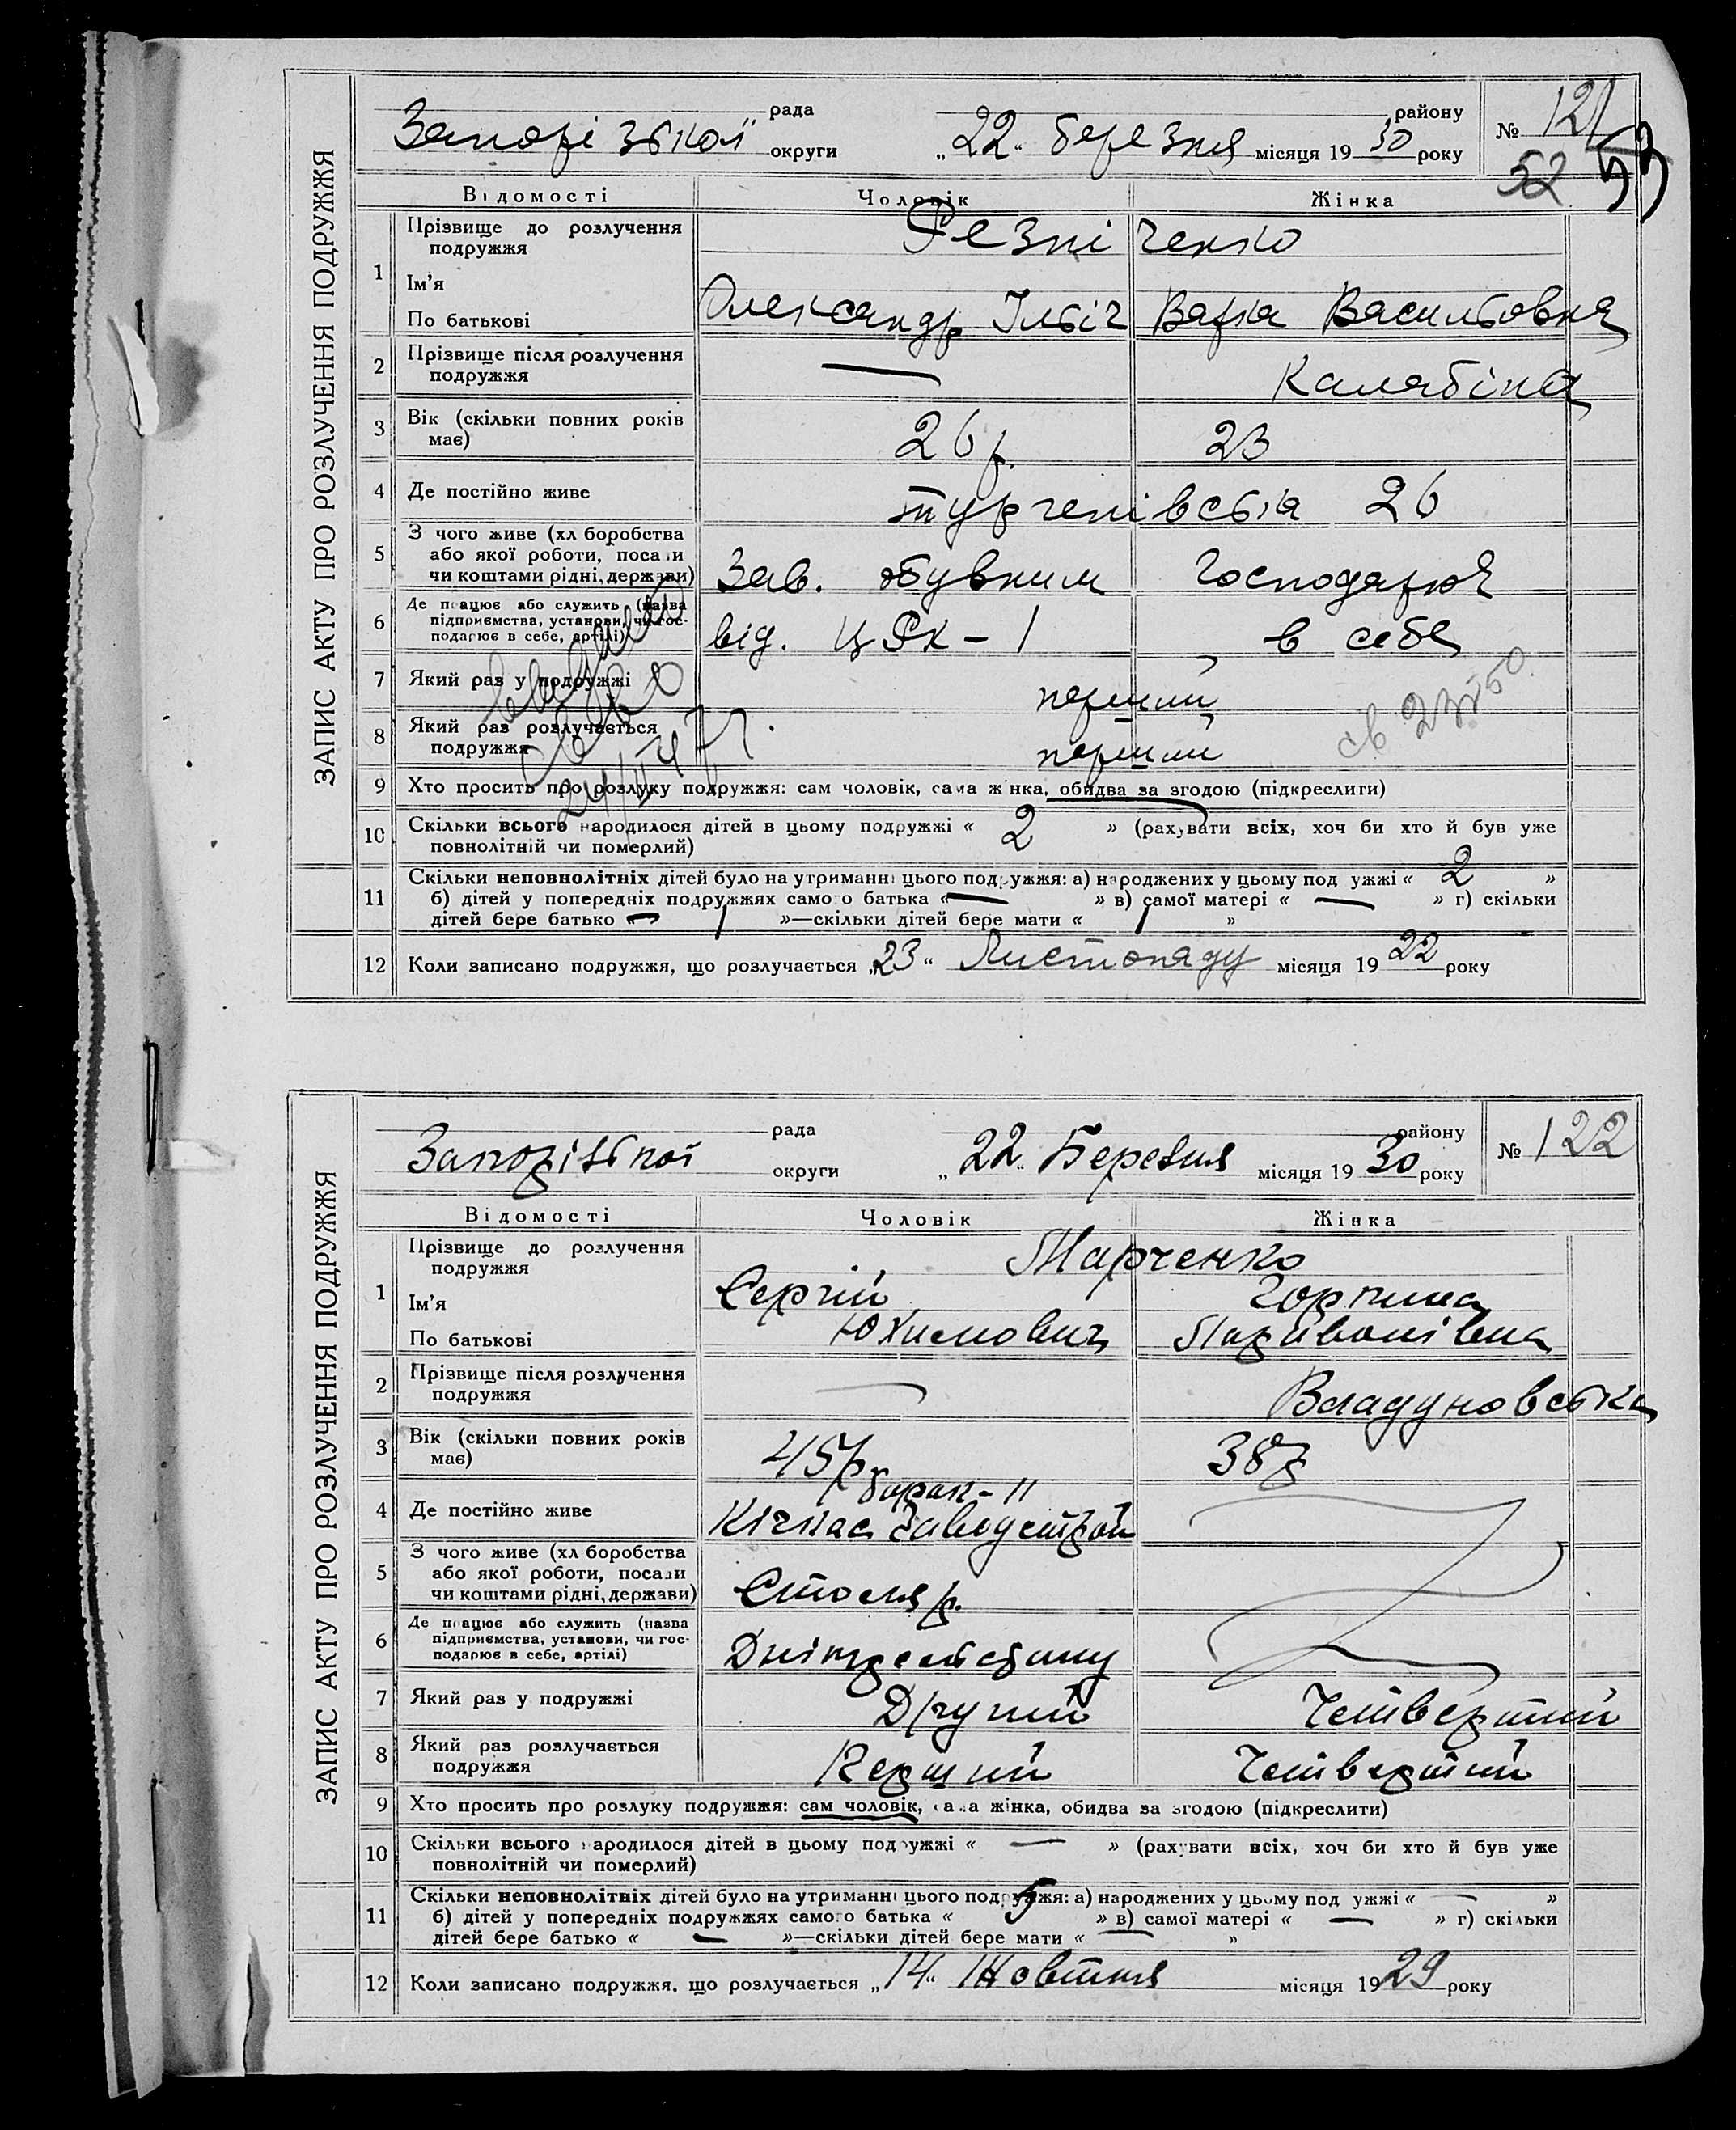 ЗАПИС АКТУ ПРО РОЗЛУЧЕННЯ ПОДРУЖЖЯ
рада району
Запорізької округи „22" березня місяця 1930 року
№ 121
52 53
Відомості Чоловік Жінка
1 Прізвище до розлучення подружжя Резніченко
Ім'я
По батькові Олександр Ільіч Варка Васильовна
2 Прізвище після розлучення подружжя — Калябіна
3 Вік (скільки повних років має) 26 р. 23
4 Де постійно живе Тургенівська 26
5 З чого живе (хлiборобства
або якої роботи, посади
чи коштами рідні, держави) Зав. обувним Господарює
6 Де працює або служить (назва
підприємства, установи, чи гос-
подарює в себе, артілі) від. ЦРК-1 в себе
7 Який раз у подружжі перший
8 Який раз розлучається
подружжя перший
св 23 50
9 Хто просить про розлуку подружжя: сам чоловік, сама жінка, обидва за згодою (підкреслити)
10 Скільки всього народилося дітей в цьому подружжі « 2 » (рахувати всіх, хоч би хто й був уже
повнолітній чи померлий)
11 Скільки неповнолітніх дітей було на утриманні цього подружжя: а) народжених у цьому подружжі « 2 »
б) дітей у попередніх подружжях самого батька « — » в) самої матері « — » г) скільки
дітей бере батько « 1 »—скільки дітей бере мати « 1 »
12 Коли записано подружжя, що розлучається „23" Листопаду місяця 1922 року
ЗАПИС АКТУ ПРО РОЗЛУЧЕННЯ ПОДРУЖЖЯ
рада району
Запорізької округи „22" Березня місяця 1930 року
№ 122
Відомості Чоловік Жінка
1 Прізвище до розлучення
подружжя Марченко
Ім'я Сергій Горпина
По батькові Юхимович Парамонівна
2 Прізвище після розлучення
подружжя — Владуновська
3 Вік (скільки повних років
має) 45 р. 38 р
барак-11
4 Де постійно живе Кічкас Заводстрой
5 З чого живе (хлiборобства
або якої роботи, посади
чи коштами рідні, держави) Столяр.
6 Де працює або служить (назва
підприємства, установи, чи гос-
подарює в себе, артілі) Дніпрельстану
7 Який раз у подружжі Другий Четвертий
8 Який раз розлучається
подружжя Перший Четвертий
9 Хто просить про розлуку подружжя: сам чоловік, сама жінка, обидва за згодою (підкреслити)
10 Скільки всього народилося дітей в цьому подружжі « — » (рахувати всіх, хоч би хто й був уже
повнолітній чи померлий)
11 Скільки неповнолітніх дітей було на утриманні цього подружжя: а) народжених у цьому подружжі « — »
б) дітей у попередніх подружжях самого батька « 5 » в) самої матері « — » г) скільки
дітей бере батько « — »—скільки дітей бере мати « — »
12 Коли записано подружжя, що розлучається „14" Жовтня місяця 1929 року